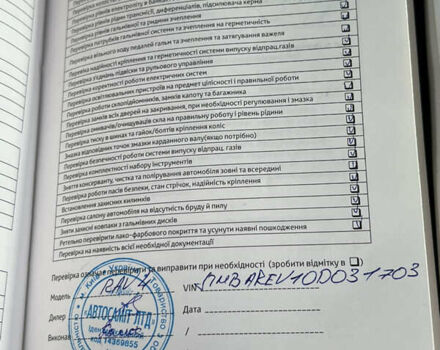 Перевірка рівня електроліту в
Перевірка рівнів рідин трансмісії, диференціалів, підсилювача керма
Перевірка рівнів гальмівної та рідини зчеплення
Перевірка патрубків гальмівної системи та зчеплення на герметичність
Перевірка вільного ходу педалей гальм та зчеплення та затягування важеля
Перевірка надійності кріплення та герметичності системи випуску відпрац.газів
Перевірка з'єднань підвіски та рульового управління
Перевірка коректності роботи електричних систем
Перевірка освітлювальних пристроїв на предмет цілісності і правильної роботи
Перевірка роботи склопідйомників, замків капоту та багажника
Перевірка замків всіх дверей на закривання, при необхідності регулювання і змазка
Перевірка омивачів/очищувачів скла на правильну роботу і рівень рідини
Перевірка тиску в шинах та гайок/болтів кріплення коліс
Змазка відповідних точок змазки карданного валу(якщо потрібно)
Перевірка безпечності роботи системи випуску відпрац. газів
Перевірка комплектності набору інструментів
Зняття консерванту, чистка та полірування автомобіля зовні та всередині
Перевірка роботи пасів безпеки, стан стрічок, надійність кріплення
Встановлення захисних килимків
Перевірка салону автомобіля на відсутність бруду й пилу
Зняти захисні ковпаки з гальмівних дисків
Ретельно перевірити лако-фарбового покриття та усунути наявні пошкодження
Перевірка на наявність всієї необхідної документації
Перевірка означає перевірити та виправити при необхідності (зробити відмітку в )
Модель RAV 4 VIN JTMBAREV10D031703
Дилер Дата
Виконав
"АВТОСАМІТ ЛТД"
код 14359855